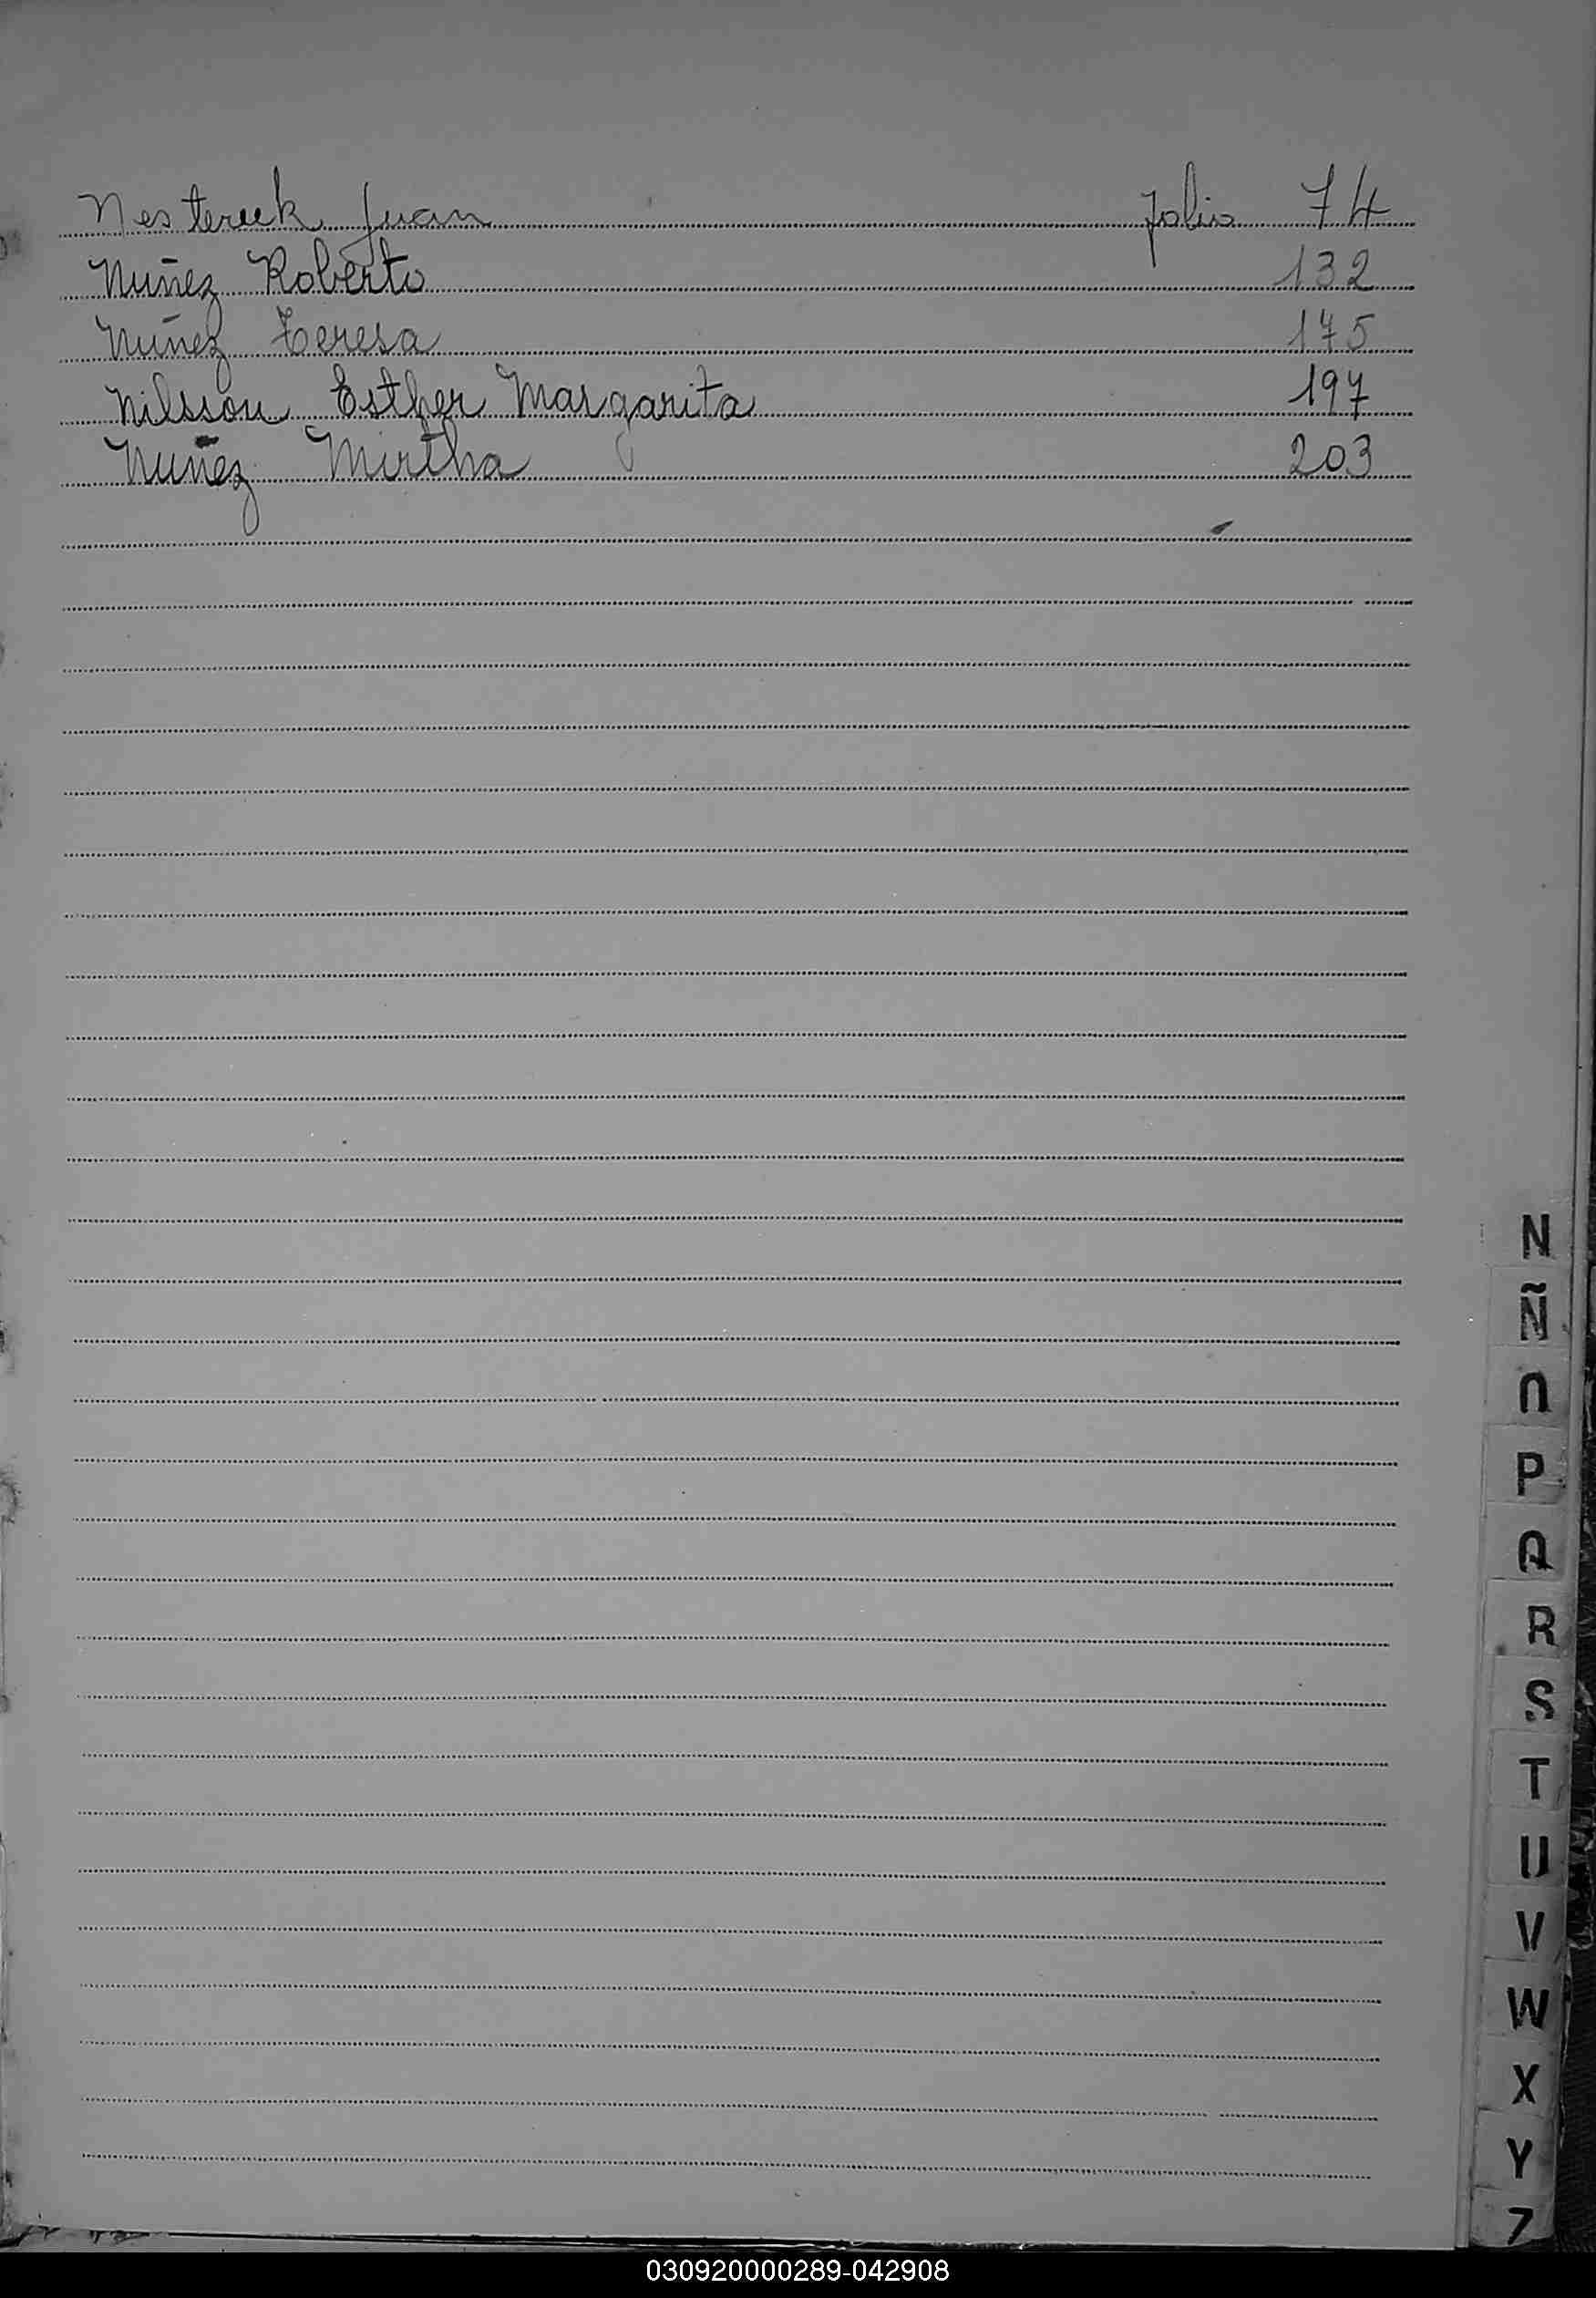 Nestereck Juan folio 74
Nuñez Roberto 132
Nuñez Teresa 175
Nilsson Esther Margarita 197
Nuñez Mirtha 203
N
Ñ
O
P
Q
R
S
T
U
V
W
X
Y
Z
030920000289-042908